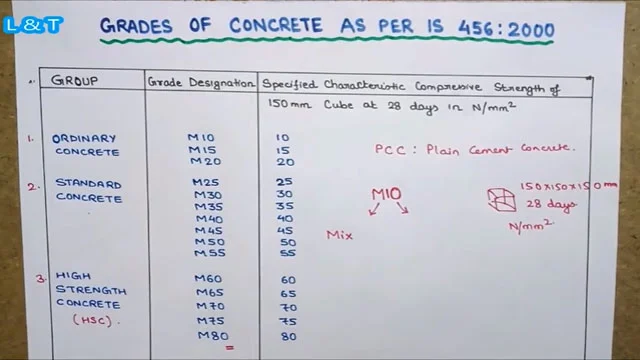 L&T
GRADES OF CONCRETE AS PER IS 456:2000
GROUP Grade Designation Specified Characteristic Compressive Strength of
150mm Cube at 28 days in N/mm²
1. ORDINARY M10 10
CONCRETE M15 15 PCC : Plain Cement Concrete.
M20 20
2. STANDARD M25 25 150x150x150 mm
CONCRETE M30 30 M10
M35 35 28 days
M40 40 N/mm²
M45 45 Mix
M50 50
M55 55
3. HIGH M60 60
STRENGTH M65 65
CONCRETE M70 70
(HSC). M75 75
M80 80